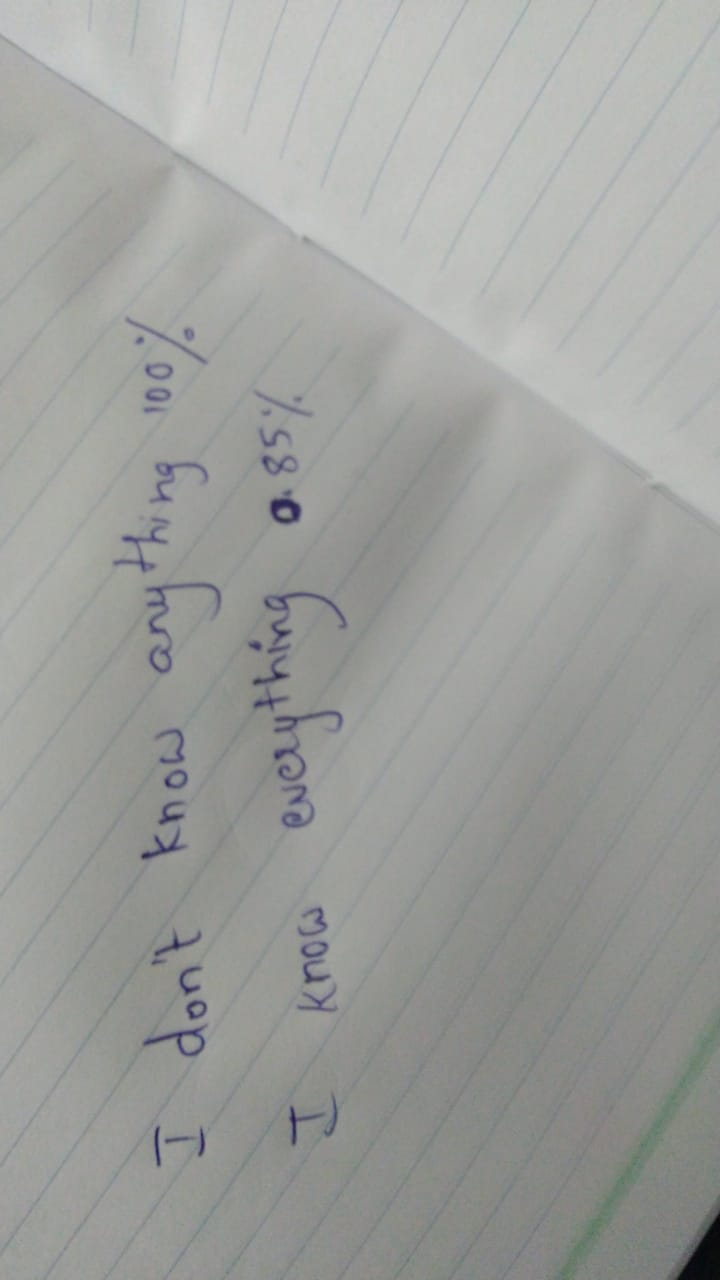 I don't know anything 100%
I know everything 0.85%